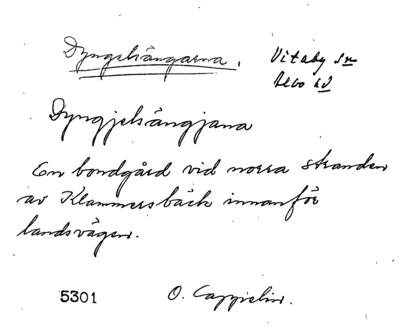 Dyngelsängarna.
Vitaby sn
Albo hd
Dyngjelsängjana
En bondgård vid norra stranden
av Klammersbäck innanför
landsvägen.
5301 O. Cappelin.